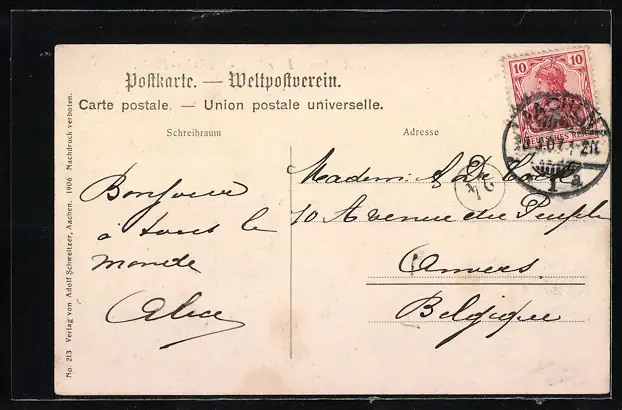 Postkarte. — Weltpostverein.
Carte postale. — Union postale universelle.
Schreibraum
Adresse
Bonjour
à tous le
monde
Alice
Madem: A De
10 Avenue du Peuple
Anvers
Belgique
10 10
DEUTSCHES REICH
AACHEN
07. 1-2N.
1 a
No. 213 Verlag von Adolf Schweitzer, Aachen. 1906 Nachdruck verboten.